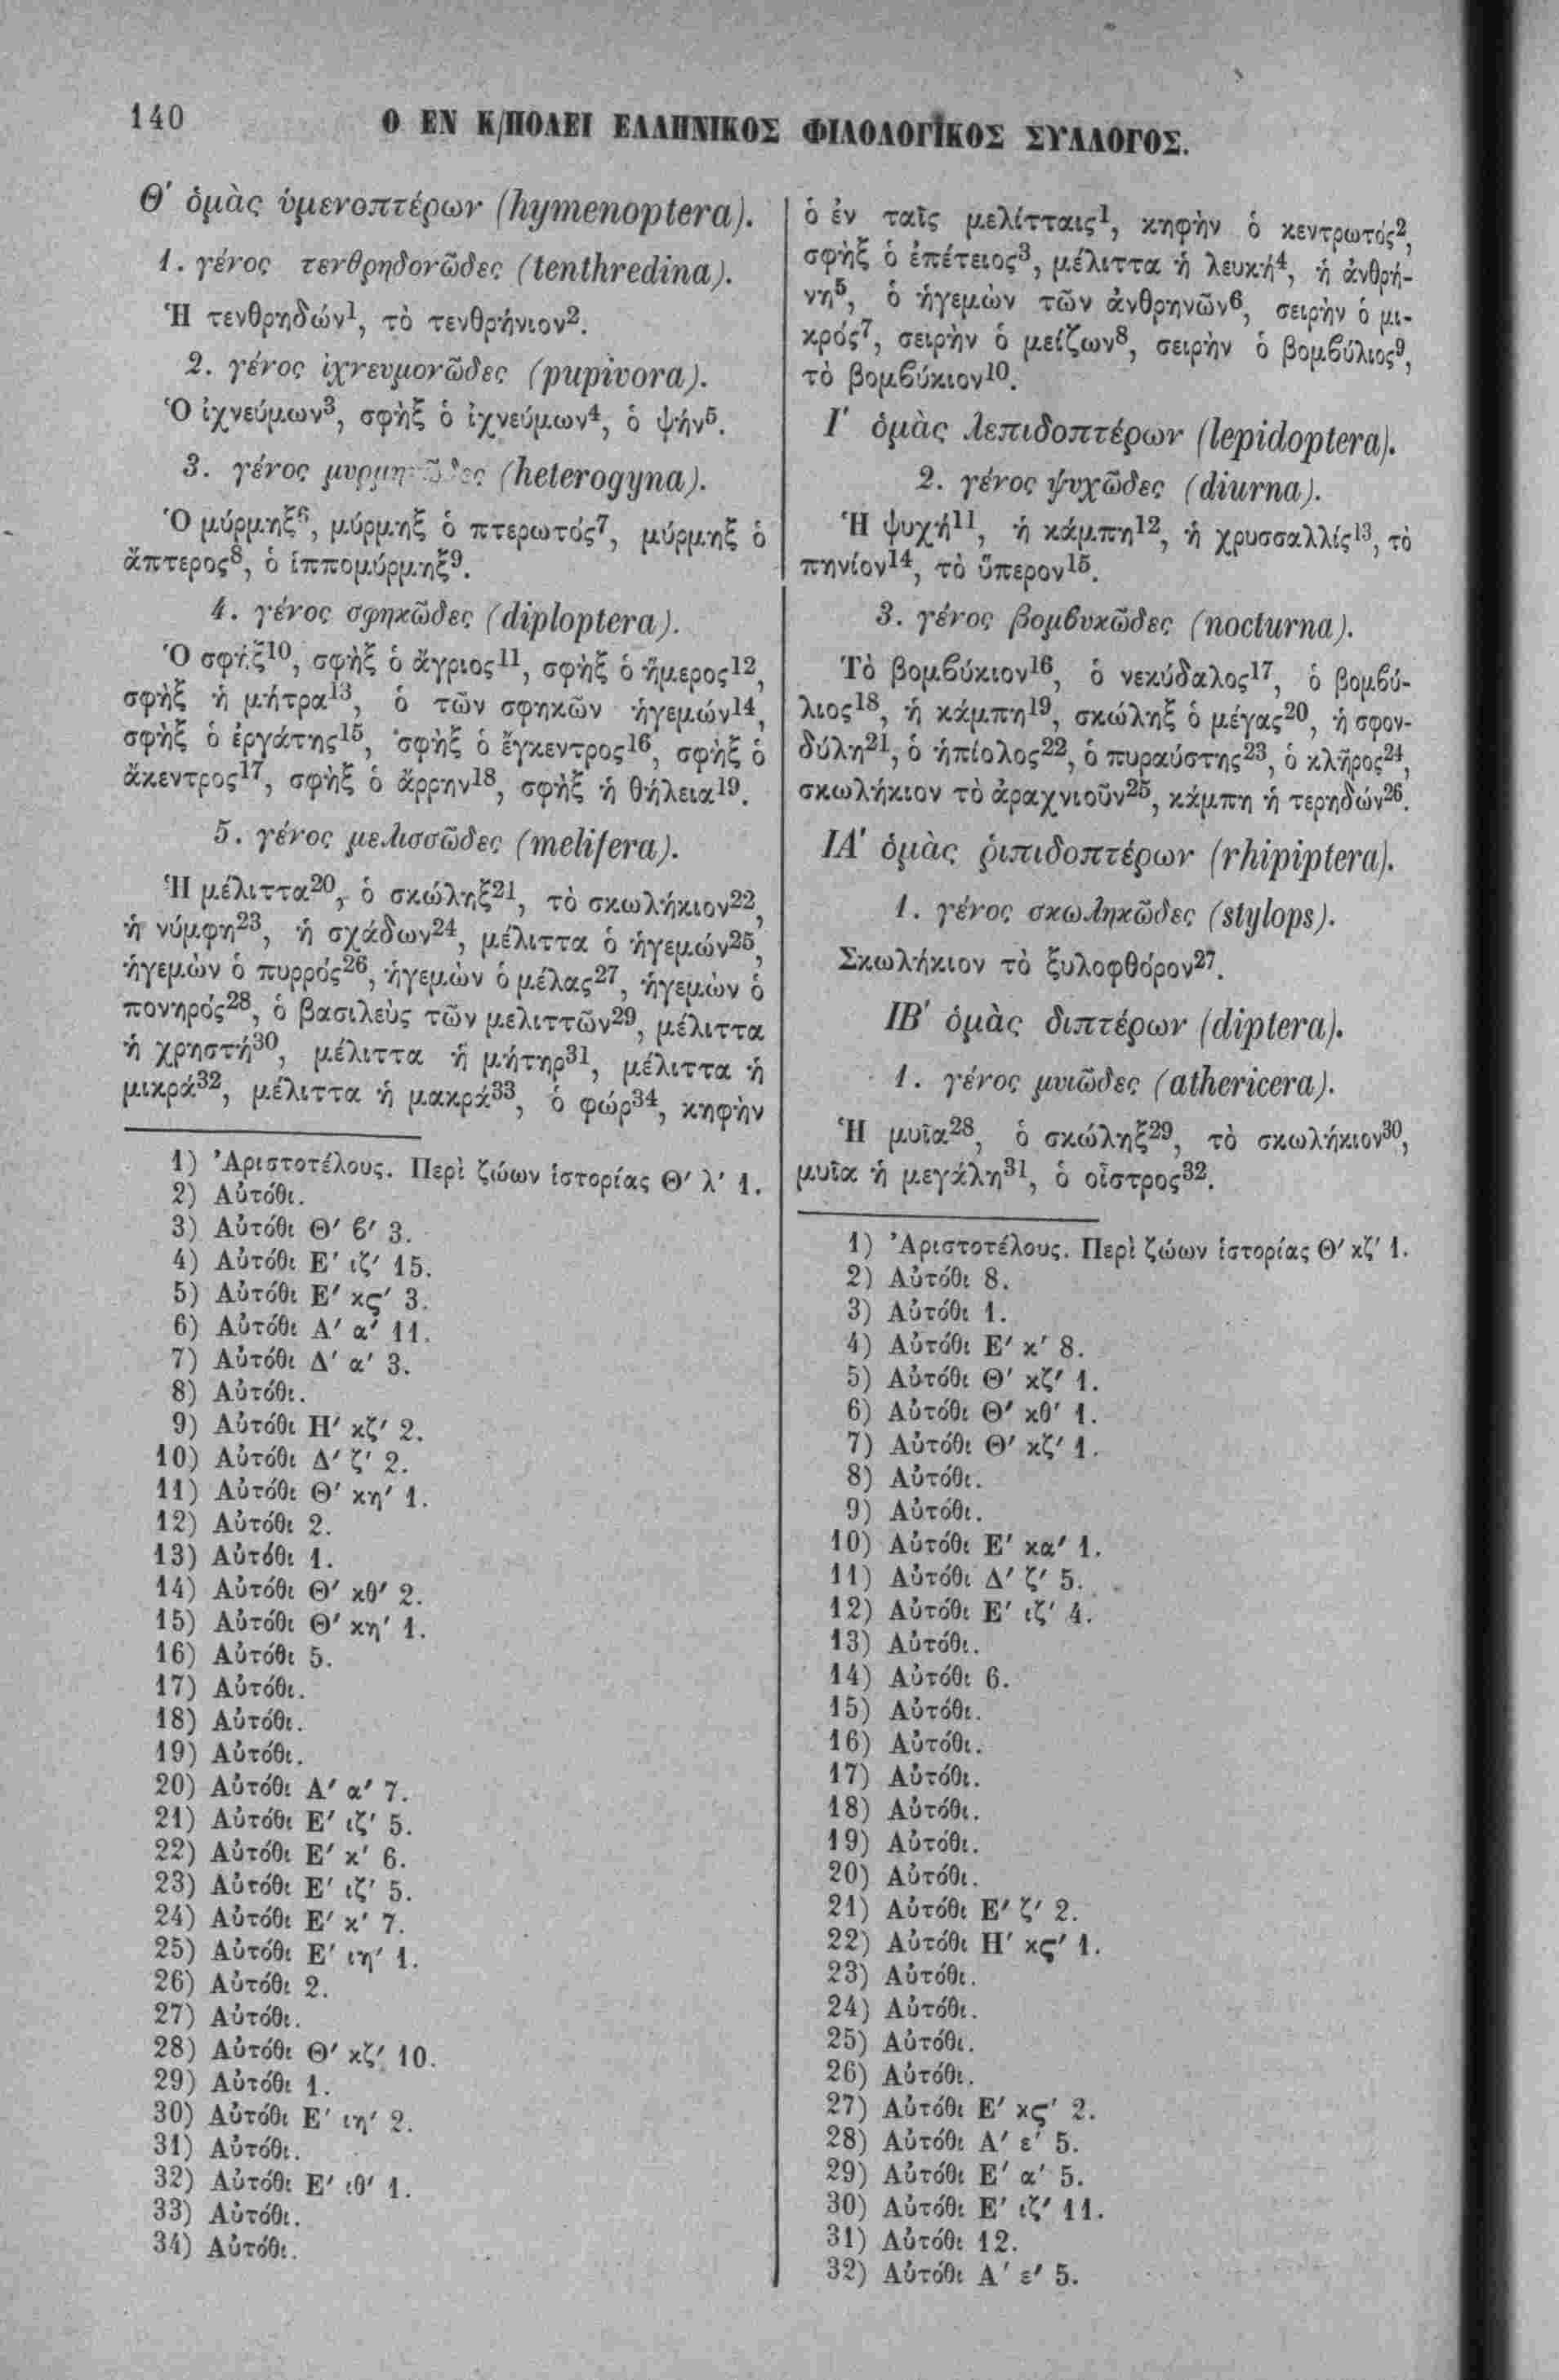 140
Ο ΕΝ Κ/ΠΟΛΕΙ ΕΛΛΗΝΙΚΟΣ ΦΙΛΟΛΟΓΙΚΟΣ ΣΥΛΛΟΓΟΣ.
Θ' ὁμὰς ὑμενοπτέρων (hymenoptera).
1. γένος τενθρηδονῶδες (tenthredina).
Ἡ τενθρηδών¹, τὸ τενθρήνιον².
2. γένος ἰχνευμονῶδες (pupivora).
Ὁ ἰχνεύμων³, σφὴξ ὁ ἰχνεύμων⁴, ὁ ψήν⁵.
3. γένος (heterogyna).
Ὁ μύρμηξ⁶, μύρμηξ ὁ πτερωτός⁷, μύρμηξ ὁ
ἄπτερος⁸, ὁ ἱππομύρμηξ⁹.
4. γένος σφηκῶδες (diploptera).
Ὁ σφήξ¹⁰, σφὴξ ὁ ἄγριος¹¹, σφὴξ ὁ ἥμερος¹²,
σφὴξ ἡ μήτρα¹³, ὁ τῶν σφηκῶν ἡγεμών¹⁴,
σφὴξ ὁ ἐργάτης¹⁵, σφὴξ ὁ ἔγκεντρος¹⁶, σφὴξ ὁ
ἄκεντρος¹⁷, σφὴξ ὁ ἄρρην¹⁸, σφὴξ ἡ θήλεια¹⁹.
5. γένος μελισσῶδες (melifera).
Ἡ μέλιττα²⁰, ὁ σκώληξ²¹, τὸ σκωλήκιον²²,
ἡ νύμφη²³, ἡ σχάδων²⁴, μέλιττα ὁ ἡγεμών²⁵,
ἡγεμὼν ὁ πυρρός²⁶, ἡγεμὼν ὁ μέλας²⁷, ἡγεμὼν ὁ
πονηρός²⁸, ὁ βασιλεὺς τῶν μελιττῶν²⁹, μέλιττα
ἡ χρηστή³⁰, μέλιττα ἡ μήτηρ³¹, μέλιττα ἡ
μικρά³², μέλιττα ἡ μακρά³³, ὁ φώρ³⁴, κηφὴν
1) Ἀριστοτέλους. Περὶ ζώων ἱστορίας Θ' λ' 1.
2) Αὐτόθι.
3) Αὐτόθι Θ' ϐ' 3.
4) Αὐτόθι Ε' ιζ' 15.
5) Αὐτόθι Ε' κς' 3.
6) Αὐτόθι Α' α' 11.
7) Αὐτόθι Δ' α' 3.
8) Αὐτόθι.
9) Αὐτόθι Η' κζ' 2.
10) Αὐτόθι Δ' ζ' 2.
11) Αὐτόθι Θ' κη' 1.
12) Αὐτόθι 2.
13) Αὐτόθι 1.
14) Αὐτόθι Θ' κθ' 2.
15) Αὐτόθι Θ' κη' 1.
16) Αὐτόθι 5.
17) Αὐτόθι.
18) Αὐτόθι.
19) Αὐτόθι.
20) Αὐτόθι Α' α' 7.
21) Αὐτόθι Ε' ιζ' 5.
22) Αὐτόθι Ε' κ' 6.
23) Αὐτόθι Ε' ιζ' 5.
24) Αὐτόθι Ε' κ' 7.
25) Αὐτόθι Ε' ιη' 1.
26) Αὐτόθι 2.
27) Αὐτόθι.
28) Αὐτόθι Θ' κζ' 10.
29) Αὐτόθι 1.
30) Αὐτόθι Ε' ιη' 2.
31) Αὐτόθι.
32) Αὐτόθι Ε' ιθ' 1.
33) Αὐτόθι.
34) Αὐτόθι.
ὁ ἐν ταῖς μελίτταις¹, κηφὴν ὁ κεντρωτός²,
σφὴξ ὁ ἐπέτειος³, μέλιττα ἡ λευκή⁴, ἡ ἀνθρή-
νη⁵, ὁ ἡγεμὼν τῶν ἀνθρηνῶν⁶, σειρὴν ὁ μι-
κρός⁷, σειρὴν ὁ μείζων⁸, σειρὴν ὁ βομϐύλιος⁹,
τὸ βομϐύκιον¹⁰.
Ι' ὁμὰς λεπιδοπτέρων (lepidoptera).
2. γένος ψυχῶδες (diurna).
Ἡ ψυχή¹¹, ἡ κάμπη¹², ἡ χρυσσαλλίς¹³, τὸ
πηνίον¹⁴, τὸ ὕπερον¹⁵.
3. γένος βομϐυκῶδες (nocturna).
Τὸ βομϐύκιον¹⁶, ὁ νεκύδαλος¹⁷, ὁ βομϐύ-
λιος¹⁸, ἡ κάμπη¹⁹, σκώληξ ὁ μέγας²⁰, ἡ σφον-
δύλη²¹, ὁ ἠπίολος²², ὁ πυραύστης²³, ὁ κλῆρος²⁴,
σκωλήκιον τὸ ἀραχνιοῦν²⁵, κάμπη ἡ τερηδών²⁶.
ΙΑ' ὁμὰς ῥιπιδοπτέρων (rhipiptera).
1. γένος σκωληκῶδες (stylops).
Σκωλήκιον τὸ ξυλοφθόρον²⁷.
ΙΒ' ὁμὰς διπτέρων (diptera).
1. γένος μυιῶδες (athericera).
Ἡ μυῖα²⁸, ὁ σκώληξ²⁹, τὸ σκωλήκιον³⁰,
μυῖα ἡ μεγάλη³¹, ὁ οἶστρος³².
1) Ἀριστοτέλους. Περὶ ζώων ἱστορίας Θ' κζ' 1.
2) Αὐτόθι 8.
3) Αὐτόθι 1.
4) Αὐτόθι Ε' κ' 8.
5) Αὐτόθι Θ' κζ' 1.
6) Αὐτόθι Θ' κθ' 1.
7) Αὐτόθι Θ' κζ' 1.
8) Αὐτόθι.
9) Αὐτόθι.
10) Αὐτόθι Ε' κα' 1.
11) Αὐτόθι Δ' ζ' 5.
12) Αὐτόθι Ε' ιζ' 4.
13) Αὐτόθι.
14) Αὐτόθι 6.
15) Αὐτόθι.
16) Αὐτόθι.
17) Αὐτόθι.
18) Αὐτόθι.
19) Αὐτόθι.
20) Αὐτόθι.
21) Αὐτόθι Ε' ζ' 2.
22) Αὐτόθι Η' κς' 1.
23) Αὐτόθι.
24) Αὐτόθι.
25) Αὐτόθι.
26) Αὐτόθι.
27) Αὐτόθι Ε' κς' 2.
28) Αὐτόθι Α' ε' 5.
29) Αὐτόθι Ε' α' 5.
30) Αὐτόθι Ε' ιζ' 11.
31) Αὐτόθι 12.
32) Αὐτόθι Α' ε' 5.